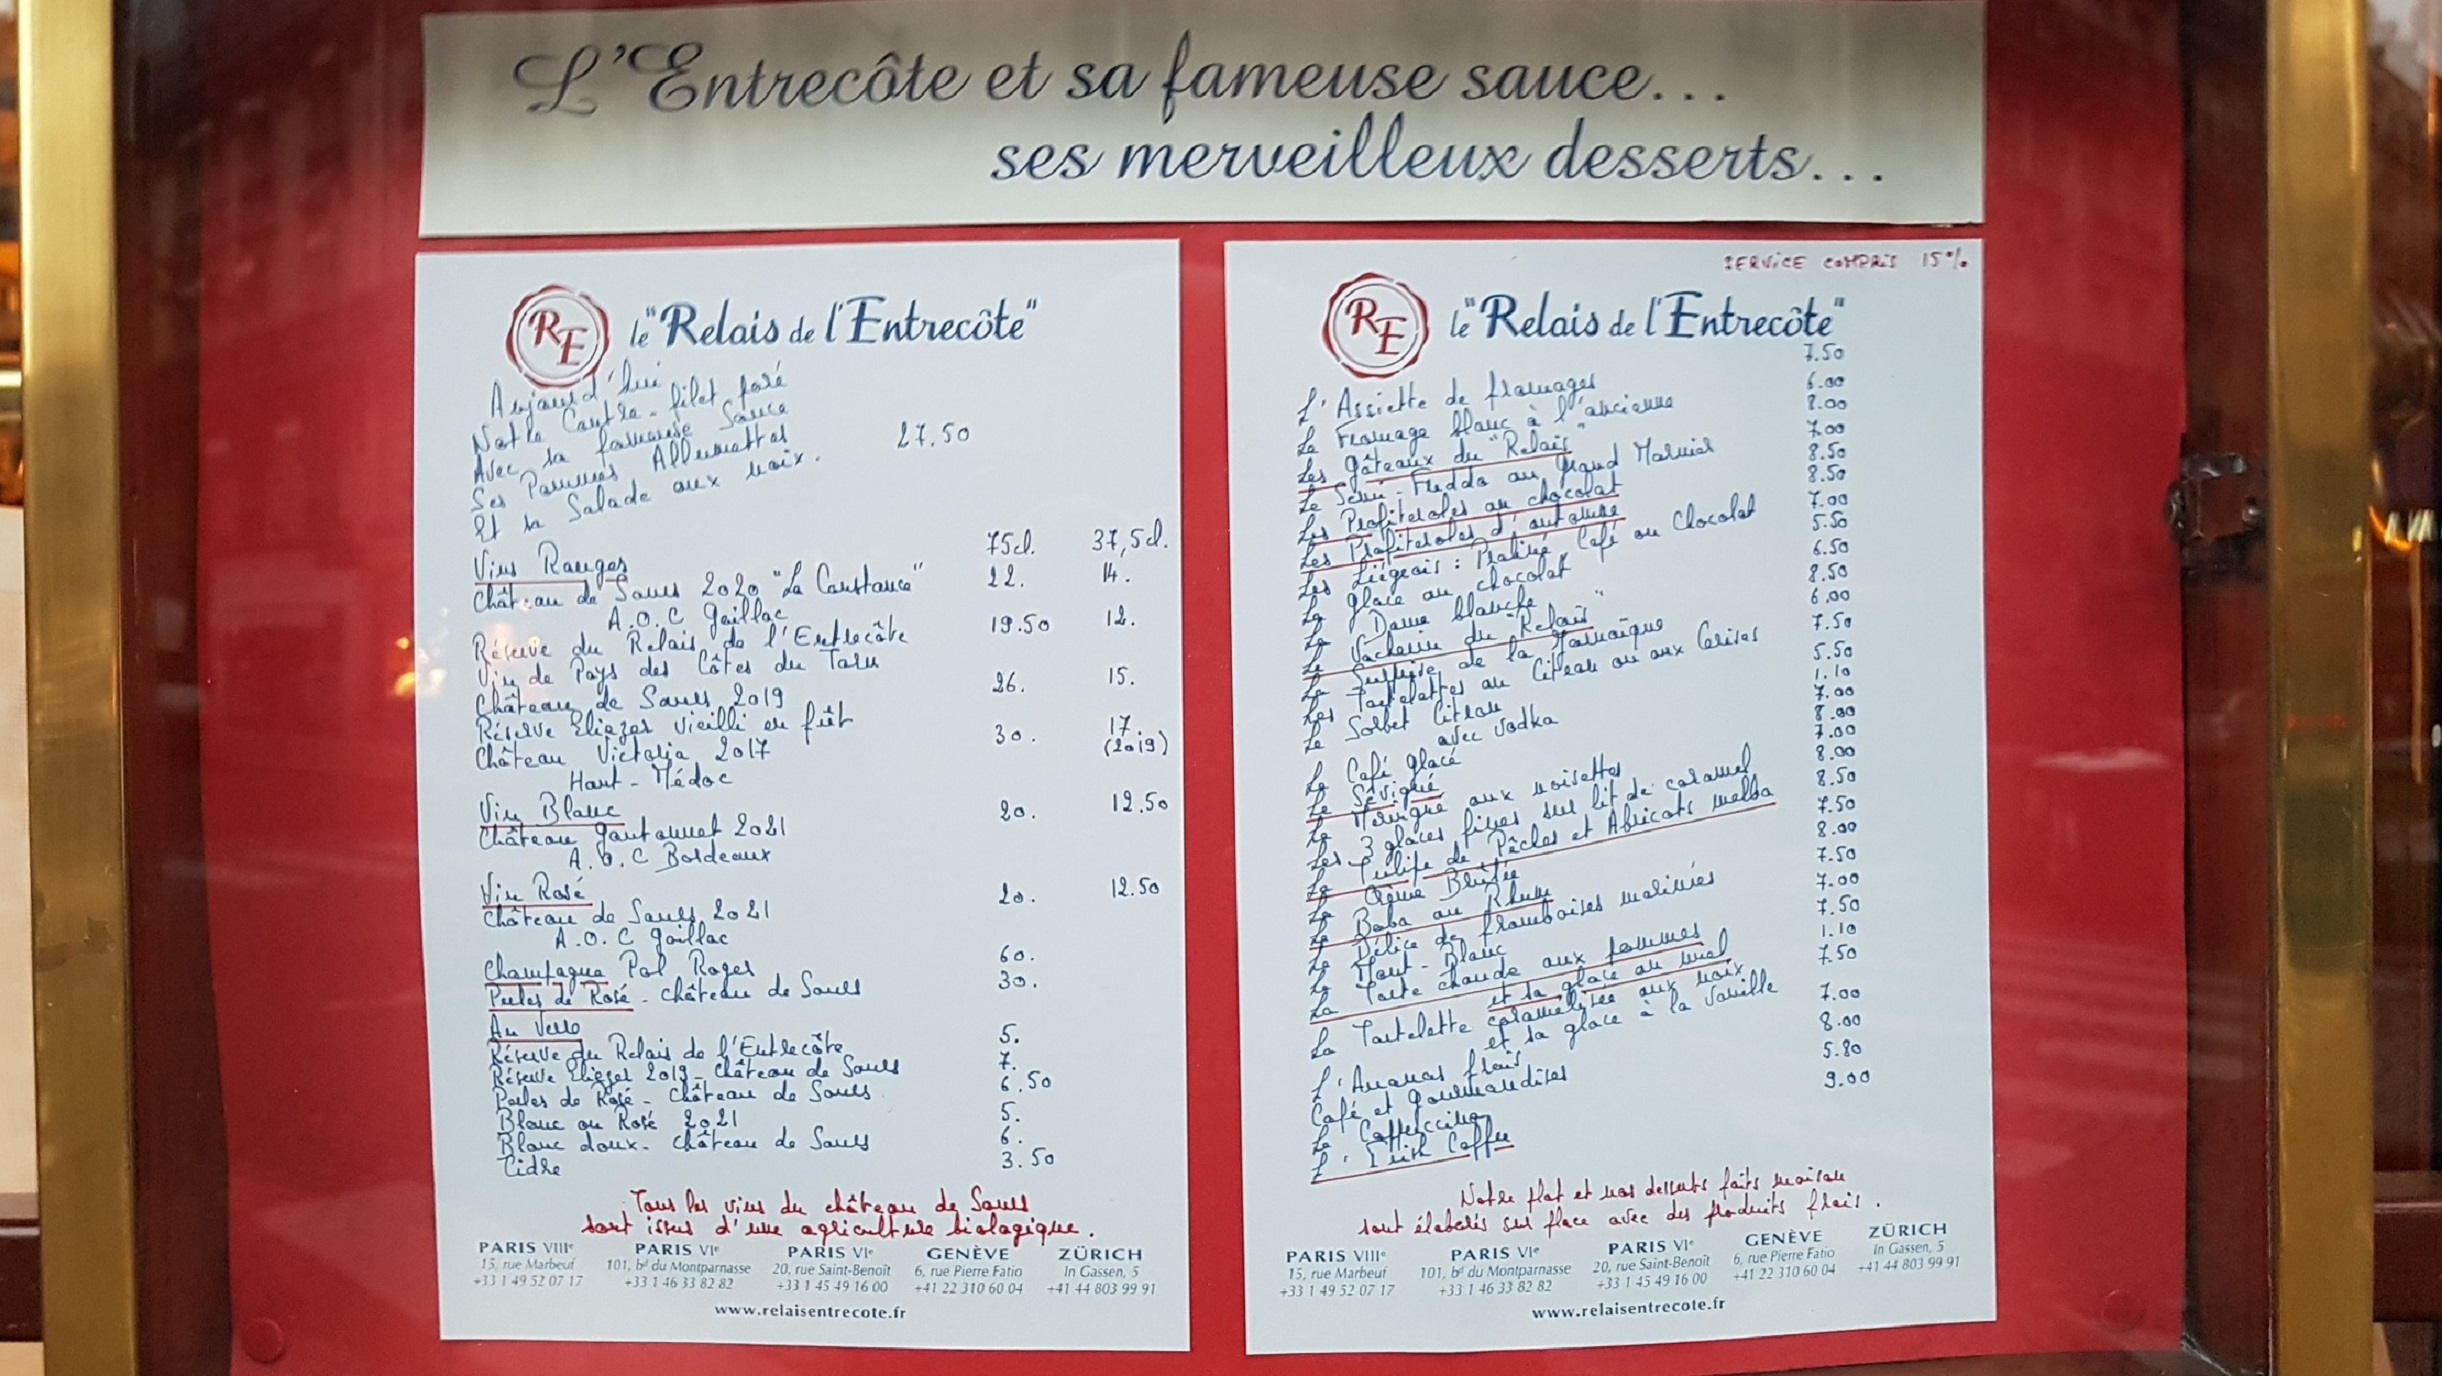 L'Entrecôte et sa fameuse sauce...
ses merveilleux desserts...
RE le "Relais de l'Entrecôte"
Aujourd'hui
Notre Contre-filet paré
Avec sa fameuse Sauce
Ses Pommes Allumettes
Et sa Salade aux noix. 27.50
75cl. 37,5cl.
Vins Rouges
Château de Saurs 2020 "La Constance" 22. 14.
A.O.C Gaillac
Réserve du Relais de l'Entrecôte 19.50 12.
Vin de Pays des Côtes du Tarn
Château de Saurs 2019 26. 15.
Réserve Eliezer vieilli en fût
Château Victoria 2017 30. 17 (2019)
Haut-Médoc
Vin Blanc
Château Gantonnet 2021 20. 12.50
A.O.C Bordeaux
Vin Rosé
Château de Saurs 2021 20. 12.50
A.O.C Gaillac
Champagne Pol Roger 60.
Perles de Rosé - Château de Saurs 30.
Au Verre
Réserve du Relais de l'Entrecôte 5.
Réserve Eliezer 2019 - Château de Saurs 7.
Perles de Rosé - Château de Saurs 6.50
Blanc ou Rosé 2021 5.
Blanc doux - Château de Saurs 6.
Cidre 3.50
Tous les vins du château de Saurs
sont issus d'une agriculture biologique.
PARIS VIIIe PARIS VIe PARIS VIe GENÈVE ZÜRICH
15, rue Marbeuf 101, bd du Montparnasse 20, rue Saint-Benoît 6, rue Pierre Fatio In Gassen, 5
+33 1 49 52 07 17 +33 1 46 33 82 82 +33 1 45 49 16 00 +41 22 310 60 04 +41 44 803 99 91
www.relaisentrecote.fr
SERVICE COMPRIS 15%
RE le "Relais de l'Entrecôte"
L'Assiette de fromages 7.50
Le Fromage blanc à l'ancienne 6.00
Les Gâteaux du "Relais" 8.00
Le Semi-Freddo au Grand Marnier 7.00
Les Profiteroles au chocolat 8.50
Les Profiteroles d'automne 8.50
Les Liégeois : Praliné, Café ou Chocolat 7.00
La glace au chocolat 5.50
La Dame blanche 6.50
Le Vacherin du "Relais" 8.50
La Surprise de la Jamaïque 6.00
Les Tartelettes au Citron ou aux Cerises 7.50
Le Sorbet Citron 5.50
avec vodka 1.10
Le Café glacé 7.00
Le Sévigné 8.00
La Meringue aux noisettes 7.00
Les 3 glaces fines sur lit de caramel 8.00
La Tulipe de Pêches et Abricots melba 8.50
La Crème Brûlée 7.50
Le Baba au Rhum 8.00
Le Délice de framboises marinées 7.50
Le Mont-Blanc 7.00
La Tarte chaude aux pommes 7.50
et sa glace au miel 1.10
La Tartelette caramélisée aux noix 7.50
et sa glace à la Vanille
L'Ananas frais 7.00
Café et gourmandises 8.00
Le Cappuccino 5.80
L'Irish Coffee 9.00
Notre plat et nos desserts faits maison
sont élaborés sur place avec des produits frais.
PARIS VIIIe PARIS VIe PARIS VIe GENÈVE ZÜRICH
15, rue Marbeuf 101, bd du Montparnasse 20, rue Saint-Benoît 6, rue Pierre Fatio In Gassen, 5
+33 1 49 52 07 17 +33 1 46 33 82 82 +33 1 45 49 16 00 +41 22 310 60 04 +41 44 803 99 91
www.relaisentrecote.fr